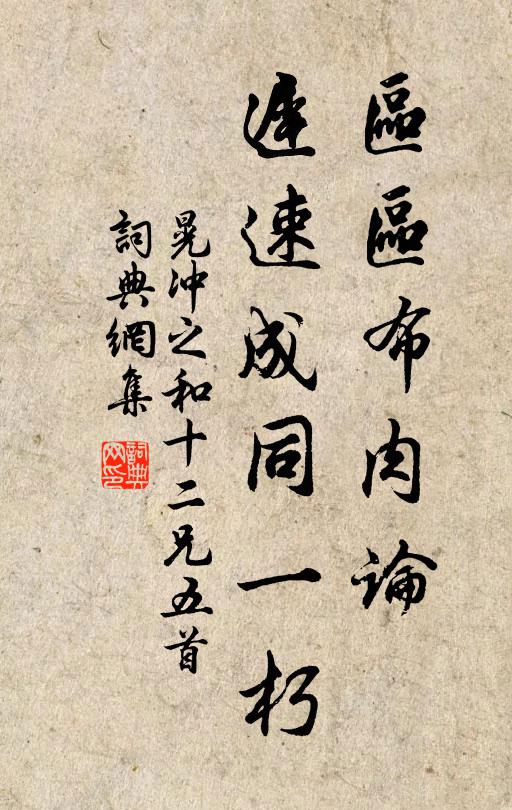 區區布肉論
遲速成同一朽
晁冲之和十二兄五首
詞典網集
詞典
网印